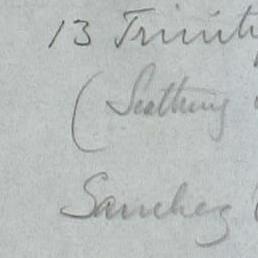 13 Trinity
(Seething
Sanchez (